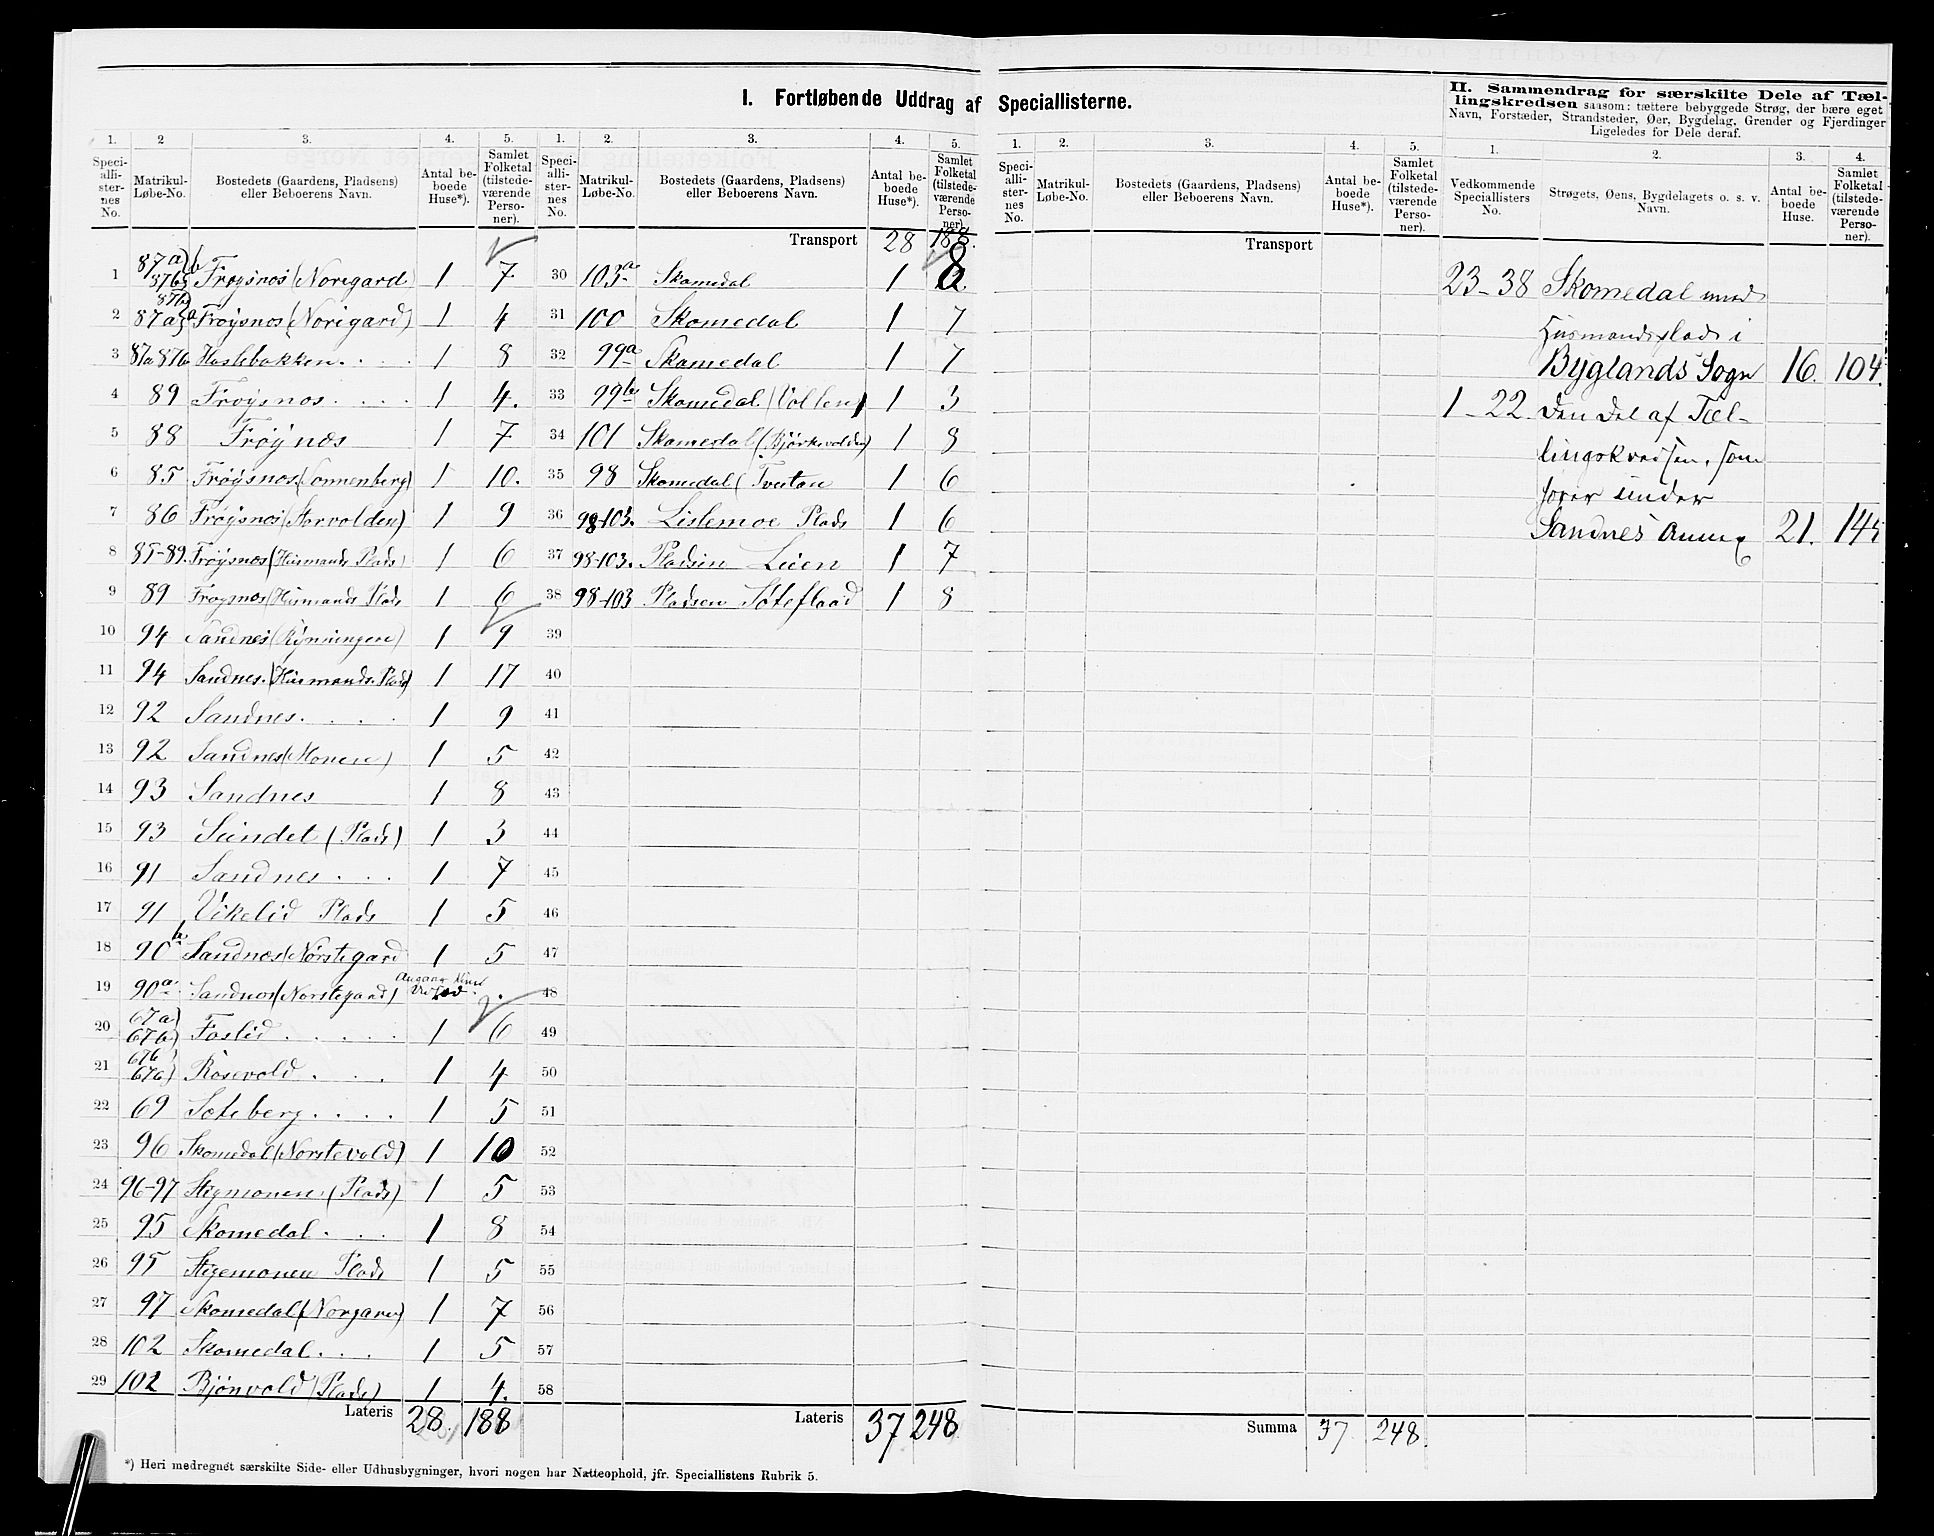 I. Fortløbende Uddrag af Speciallisterne.
II. Sammendrag for særskilte Dele af Tæl-
lingskredsen saasom: tættere bebyggede Strøg, der bære eget
Navn, Forstæder, Strandsteder, Øer, Bygdelag, Grender og Fjerdinger
Ligeledes for Dele deraf.
1. 2 3. 4. 5.
Speci-alli-ster-nes No. Matrikul-Løbe-No. Bostedets (Gaardens, Pladsen) eller Beboerens Navn. Antal be-boede Huse*). Samlet Folketal (tilstede-værende Perso-ner).
1 87a 87b Frøysnes (Noregard 1 7
2 87b 87a Frøysnes (Norigard) 1 4
3 87a 87b Haslebakken 1 8
4 89 Frøysnes 1 4.
5 88 Frøynæs 1 7
6 85 Frøysnes (Sonnenberg) 1 10.
7 86 Frøysnes (Storvolden) 1 9
8 85-89. Frøysnæs (Husmands Plads) 1 6
9 89 Frøysnes (Husmands Plads 1 6
10 94 Sandnes (Rynningen) 1 9
11 94 Sandnes. (Husmands. Plads) 1 17
12 92 Sandnes. 1 9
13 92 Sandnes (Monen) 1 5
14 93 Sandnes 1 8
15 93 Sundet (Plads) 1 3
16 91 Sandnes 1 7
17 91 Vikelid Plads 1 5
18 90b Sandnes (Nørstegard 1 5
19 90a Sandnes (Norstegaard)
20 67a) 67b) Foslid 1 6
21 67b) 67a) Rosevold 1 4
22 69 Sæteberg 1 5
23 96 Skomedal (Norstevold) 1 10
24 96-97 Stigmonen (Plads) 1 5
25 95 Skomedal 1 8
26 95 Stigemonen Plads 1 5
27 97 Skomedal (Norgaren) 1 7
28 102 Skomedal 1 5
29 102 Bjønvold (Plads) 1 4.
Lateris 28. 188
*) Heri medregnet særskilte Side- eller Udhusbygninger, hvori nogen har Natteophold, jfr. Speciallistens Rubrik 5.
1. 2. 3. 4. 5.
Speci-alli-ster-nes No. Matrikul-Løbe-No. Bostedets (Gaardens, Pladsen) eller Beboerens Navn. Antal be-boede Huse*). Samlet Folketal (tilstede-værende Perso-ner).
Transport 28 188.
30 103a Skomedal 1 8
31 100 Skomedal 1 7
32 99a Skomedal 1 7
33 99b Skomedal (Vollen) 1 3
34 101 Skomedal (Bjørkevolden) 1 8
35 98 Skomedal (Tveiten 1 6
36 98-103. Lislemoe Plads 1 6
37 98-103. Pladsen Lien 1 7
38 98-103 Pladsen Søteflaad 1 8
39
40
41
42
43
44
45
46
47
48
49
50
51
52
53
54
55
56
57
58
Lateris 37 248
1. 2. 3. 4. 5.
Speci-alli-ster-nes No. Matrikul-Løbe-No. Bostedets (Gaardens, Pladsen) eller Beboerens Navn. Antal be-boede Huse*). Samlet Folketal (tilstede-værende Perso-ner).
Transport
Summa 37 248.
1. 2. 3. 4.
Vedkommende Speciallisters No. Strøgets, Øens, Bygdelagets o. s. v. Navn. Antal be-boede Huse. Samlet Folketal (tilstede-værende Perso-ner).
23-38 Skomedal med
Husmandsplads i
Byglands Sogn 16. 104.
1-22 Den Del af Tæl-
lingskredsen, som
hører under
Sandnes Annex 21. 144